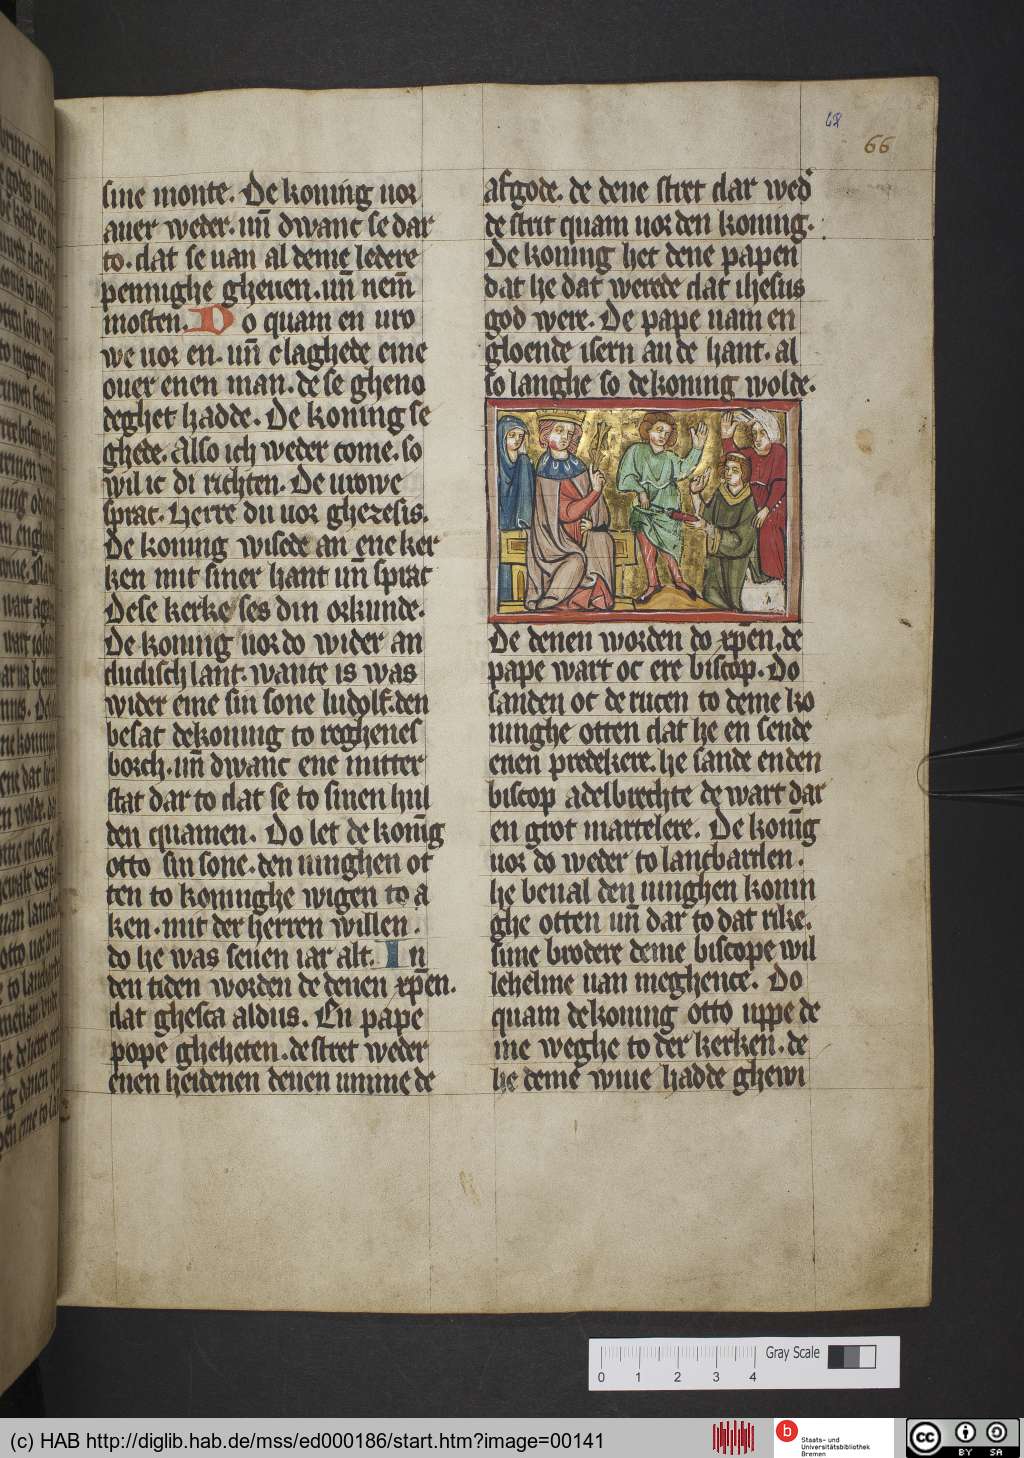 sine monte. De koning uor
auer weder. un̄ dwanc se dar
to. dat se uan al deme ledere
pennighe gheuen. un̄ nem̄
mosten. Do quam en uro
we uor en. un̄ claghede eine
ouer enen man. de se gheno
deghet hadde. De koning se
ghede. Also ich weder come. so
wil ic di richten. De urowe
sprac. Herre du uor ghezesis.
De koning wisede an ene ker
ken mit siner hant un̄ sprac
Dese kerke ses din orkunde.
De koning uor do wider an
dudisch lant. wante is was
wider eme sin sone ludolf. den
besat de koning to reghenes
borch. un̄ dwanc ene mitter
stat dar to dat se to sinen hul
den quamen. Do let de konīg
otto sin sone. den iunghen ot
ten to koninghe wigen to a
ken. mit der herren willen.
do he was seuen iar alt. In
den tiden worden de denen xp̄en.
dat ghesca aldus. En pape
pope gheheten. de stret weder
enen heidenen denen umme de
afgode. de dene stret dar wed'
de strit quam uor den koning.
De koning het dene papen
dat he dat werede dat ihesus
god were. De pape nam en
gloende isern an de hant. al
so langhe so de koning wolde.
De denen worden do xp̄en. de
pape wart oc ere biscop. Do
sanden oc de rucen to deme ko
ninghe otten dat he en sende
enen predekere. he sande en den
biscop adelbrechte de wart dar
en grot martelere. De konīg
uor do weder to lancbarden.
he beual den iunghen konin
ghe otten un̄ dar to dat rike.
sime brodere deme biscope wil
lehelme uan meghence. Do
quam de koning otto uppe de
me weghe to der kerken. de
he deme wiue hadde ghewi
68
66
0 1 2 3 4
Gray Scale
(c) HAB http://diglib.hab.de/mss/ed000186/start.htm?image=00141
b
Staats- und
Universitätsbibliothek
Bremen
cc
BY SA